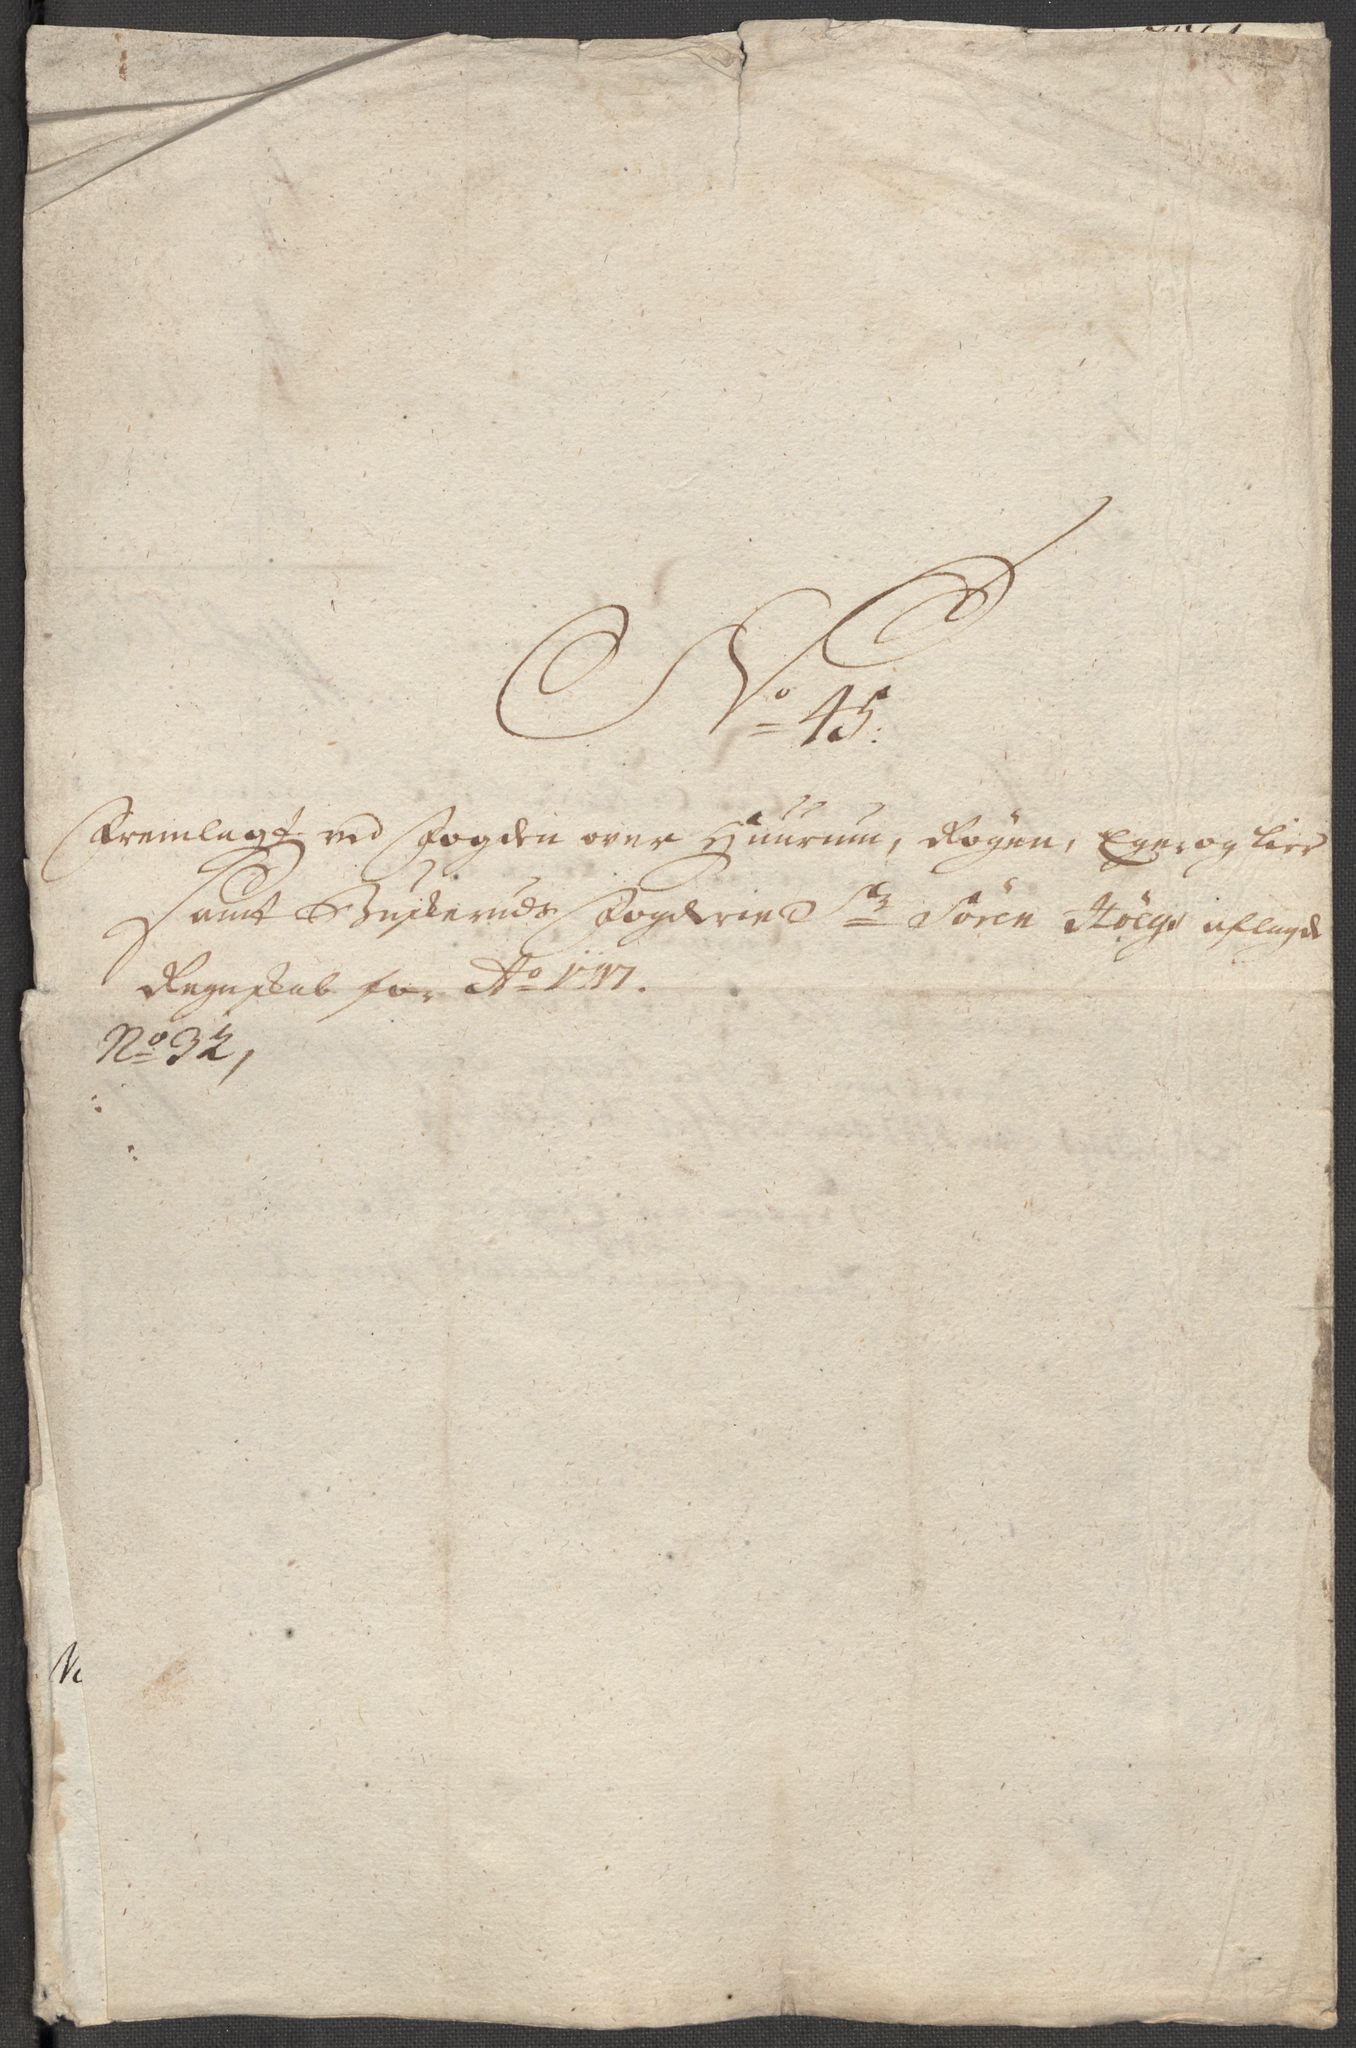 No 45.
Fremlagt ved Fogden over Huurum, Røgen, Eger og Lier
samt Buskeruds Fogderie Sr Søren Høegs aflagde
Regnskab for Ao 1717.
No 32,